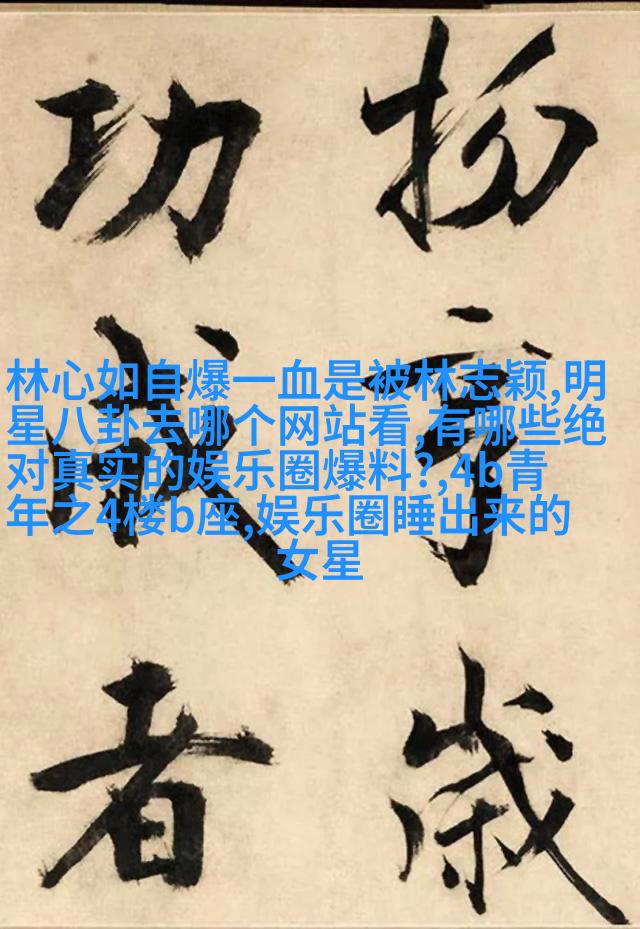 歲
功成者
林心如自爆一血是被林志颖,明
星八卦去哪个网站看,有哪些绝
对真实的娱乐圈爆料?,4b青
年之4楼b座,娱乐圈睡出来的
女星